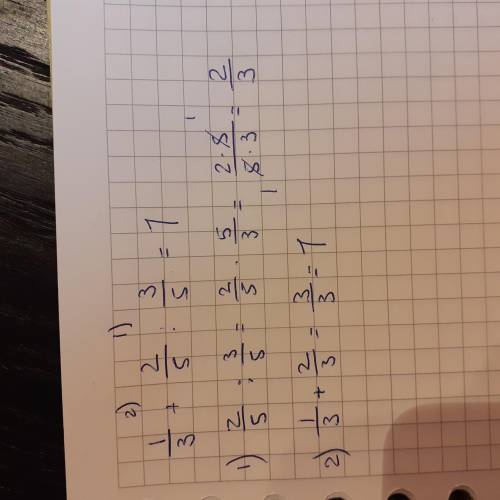 2) 1)
1/3 + 2/5 : 3/5 = 1
1) 2/5 : 3/5 = 2/5 · 5/3 = 2·5/5·3 = 2/3
1 1
2) 1/3 + 2/3 = 3/3 = 1